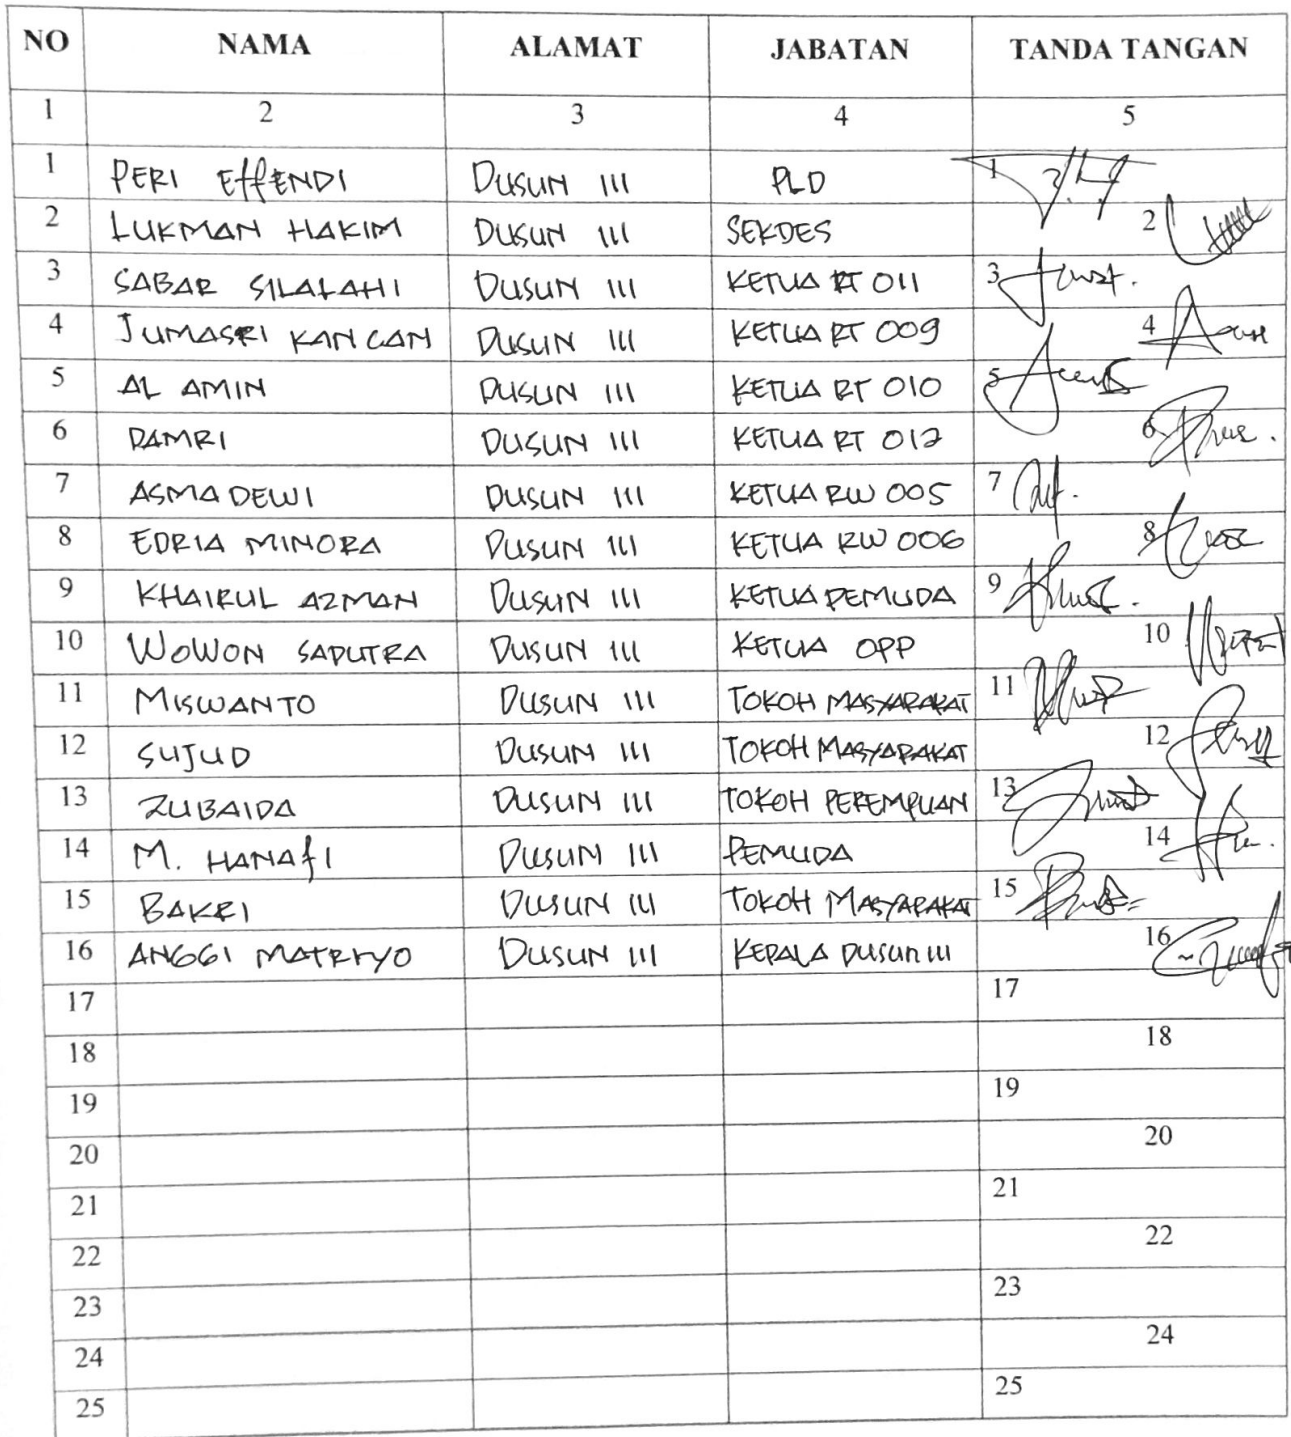 NO NAMA ALAMAT JABATAN TANDA TANGAN
1 2 3 4 5
1 PERI EFFENDI DUSUN III PLD 1
2 LUKMAN HAKIM DUSUN III SEKDES 2
3 SABAR SILALAHI DUSUN III KETUA RT 011 3
4 JUMASRI KANCAN DUSUN III KETUA RT 009 4
5 AL AMIN DUSUN III KETUA RT 010 5
6 DAMRI DUSUN III KETUA RT 012 6
7 ASMA DEWI DUSUN III KETUA RW 005 7
8 EDRIA MINORA DUSUN III KETUA RW 006 8
9 KHAIRUL AZMAN DUSUN III KETUA PEMUDA 9
10 WOWON SAPUTRA DUSUN III KETUA OPP 10
11 MISWANTO DUSUN III TOKOH MASYARAKAT 11
12 SUJUD DUSUN III TOKOH MASYARAKAT 12
13 ZUBAIDA DUSUN III TOKOH PEREMPUAN 13
14 M. HANAFI DUSUN III PEMUDA 14
15 BAKRI DUSUN III TOKOH MASYARAKAT 15
16 ANGGI DUSUN III KEPALA DUSUN III 16
17 17
18 18
19 19
20 20
21 21
22 22
23 23
24 24
25 25